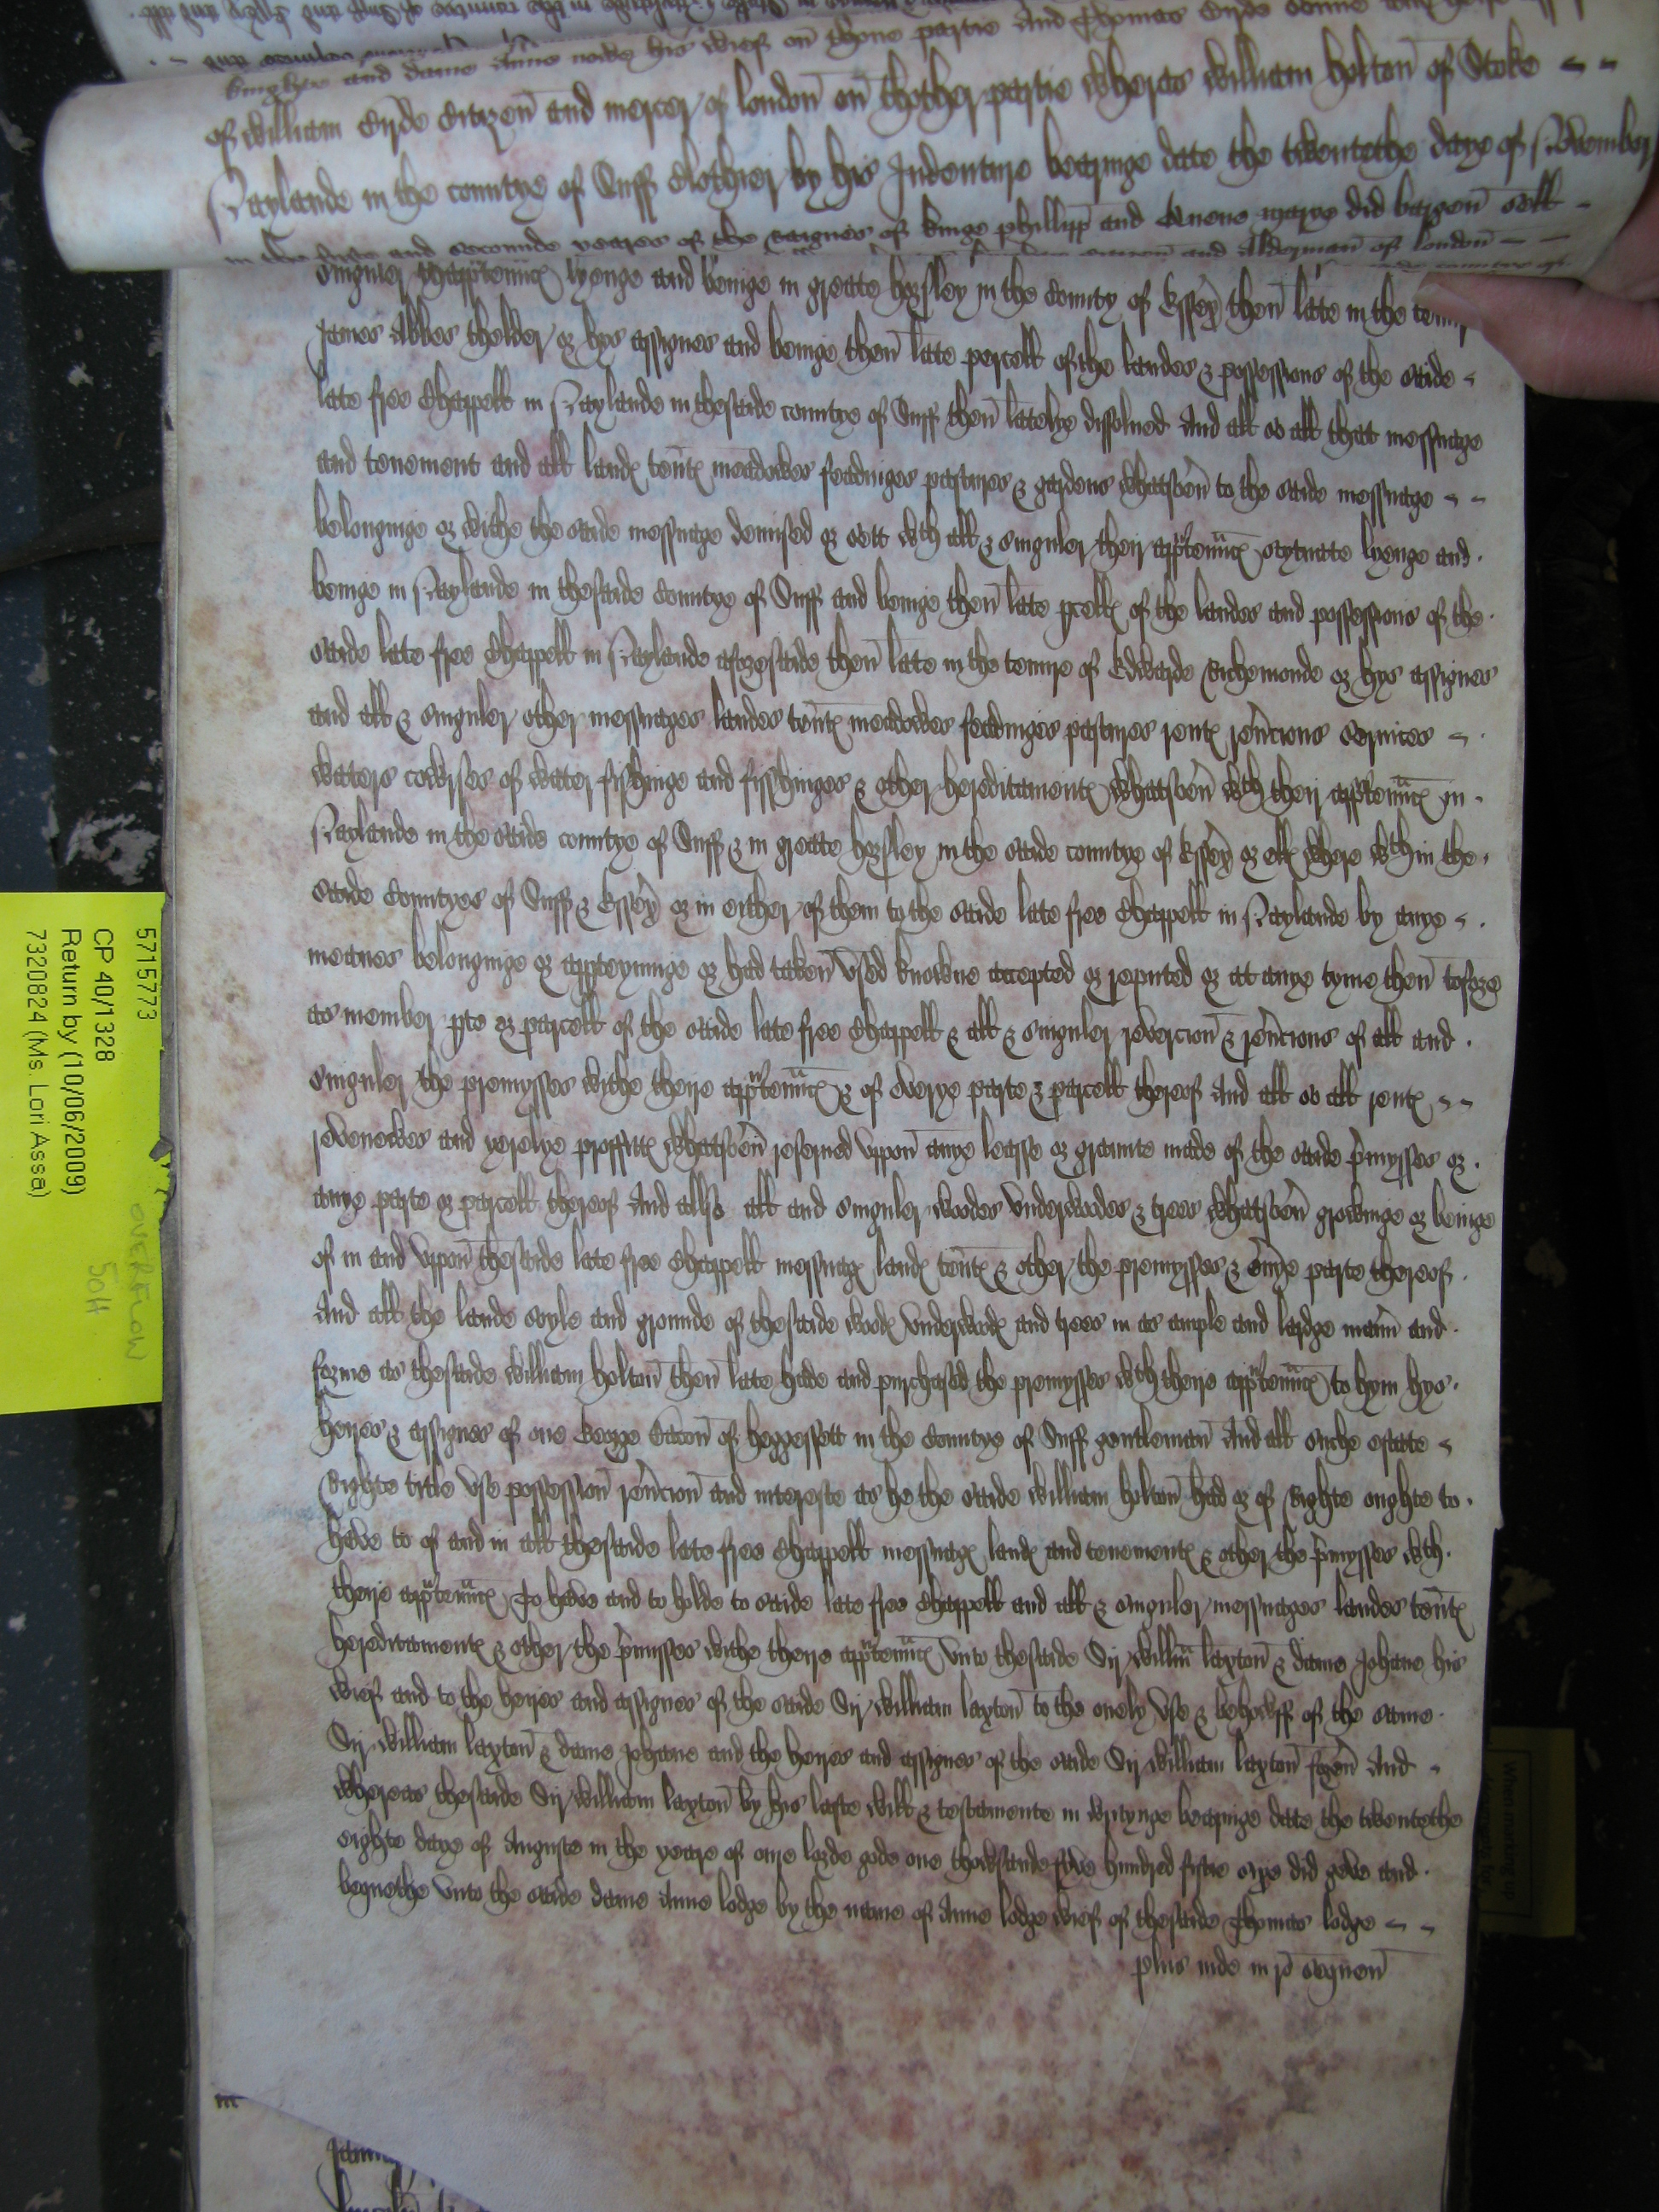 knyghte and dame Anne nowe his wief on thone partie And Thomas Gyrde sonne
of William Gyrde Citizen and mercer of london on thother partie Wheras William holton of Stoke
Naylande in the countye of Suff Clothier by his Indenture bearinge date the twentethe daye of November
in the firste and seconnde yeares of the Raignes of kinge phillipp and Quene marye did bargen sell
and Alderman of london
singuler thapptennc lyenge and beinge in greate horsley in the County of Essex then late in the
James Abbes thelder or hys assignes and beinge then late percell of the landes & possessions of the saide
late free Chappell in Naylande in thesaide countye of Suff then latelye dissolued And all so all that messuage
and tenement and all land tent meadowes feadinges pastures & gardens whatsoeu to the saide messuage
belonginge or withe the saide messuage demised or sett wth all & singuler their apptennc scytuate lyenge and
beinge in Naylande in thesaide Countye of Suff and beinge then late pcell of the landes and possessions of the
saide late free Chappell in Naylande aforesaide then late in the tenure of Edwarde Richemonde or hys assignes
and all & singuler other messuages landes tent meadowes feadinges pastures rent reucions seruices
waters cowrses of water fishinge and fisshinges & other hereditament whatsoeu wth their apptennc in
Naylande in the saide countye of Suff & in greate horsley in the saide countye of Essex or ell where wthin the
saide Countyes of Suff & Essex or in either of them to the saide late free Chappell in Naylande by anye
meanes belonginge or apperteyninge or had taken vsed knowne accepted or reputed or at anye tyme then tofore
as member pte or parcell of the saide late free Chappell & all & singuler revercion & reucions of all and
singuler the premysses withe theire apptennc & of everye parte & parcell thereof And all so all rent
revenewes and yerelye proffitt whatsoeu reserued vppon anye leasse or graunte made of the saide pmysses or
anye parte or parcell thereof And allso all and singuler woodes vnderwoodes & trees whatsoeu growinge or beinge
of in and vppon thesaide late free Chappell messuag land tent & other the premysses & euye parte thereof
And all the lande soyle and grounde of thesaide wood vnderwood and trees in as ample and lardge mann and
forme as thesaide William holton then late hade and purchased the premysses wth theire apptennc to hym hys
heires & assignes of one George Bacon of heggessett in the Countye of Suff gentleman And all suche estate
Righte title vse possession reucion and intereste as he the saide William holton had or of Righte oughte to
have to of and in all thesaide late free Chappell messuag land and tenement & other the pmysses wth
theire apptennc To have and to holde to saide late free Chappell and all & singuler messuages landes tent
hereditament & other the pmisses withe theire apptennc vnto thesaide Sir Willm laxton & dame Johane his
wief and to the heires and assignes of the saide Sir William laxton to the onely vse & behowff of the same
Sir William laxton & dame Johane and the heires and assignes of the saide Sir William laxton foreu And
Whereas thesaide Sir William laxton by his laste will & testamente in writynge bearinge date the twentethe
eighte daye of Auguste in the yeare of oure lorde gode one thowsande fyve hundred fiftie sixe did geve and
bequethe vnto the saide dame Anne lodge by the name of Anne lodge wief of thesaide Thomas lodge
plus inde in ro sequen
5715773
CP 40/1328
Return by (10/06/2009)
7320824 (Ms. Lori Assa)
OVERFLOW
50H